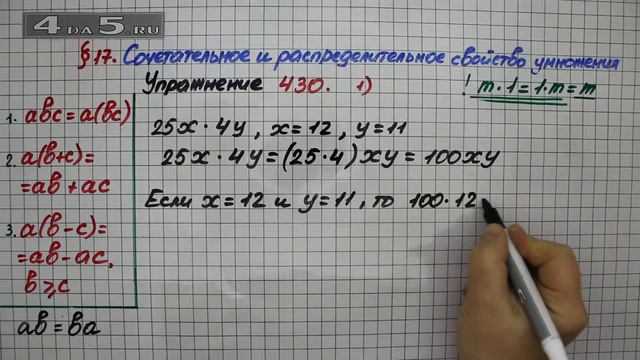 4DA5.RU
§17. Сочетательное и распределительное свойство умножения
Упражнение 430. 1)
! m·1=1·m=m
1. abc=a(bc)
2. a(b+c)=
=ab+ac
3. a(b-c)=
=ab-ac,
b⩾c
ab=ba
25x·4y, x=12, y=11
25x·4y=(25·4)xy=100xy
Если x=12 и y=11, то 100·12